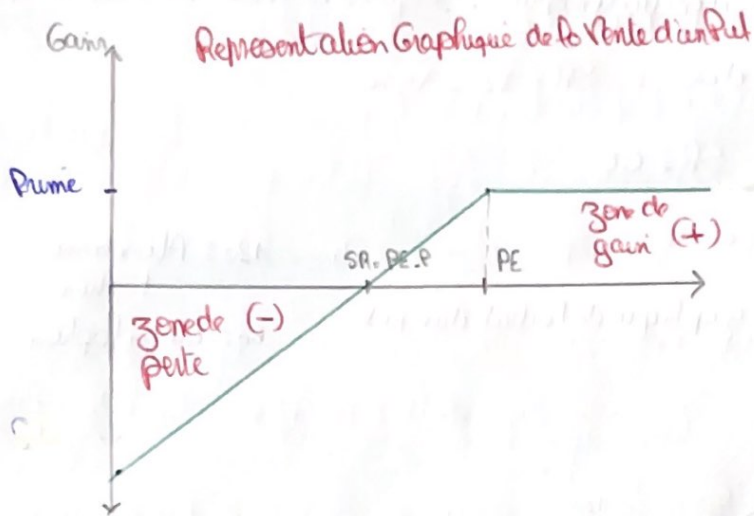 Gain
Representation Graphique de la Vente d'un Put
Prime
SR = PE - P
PE
zone de
gain (+)
zone de (-)
perte